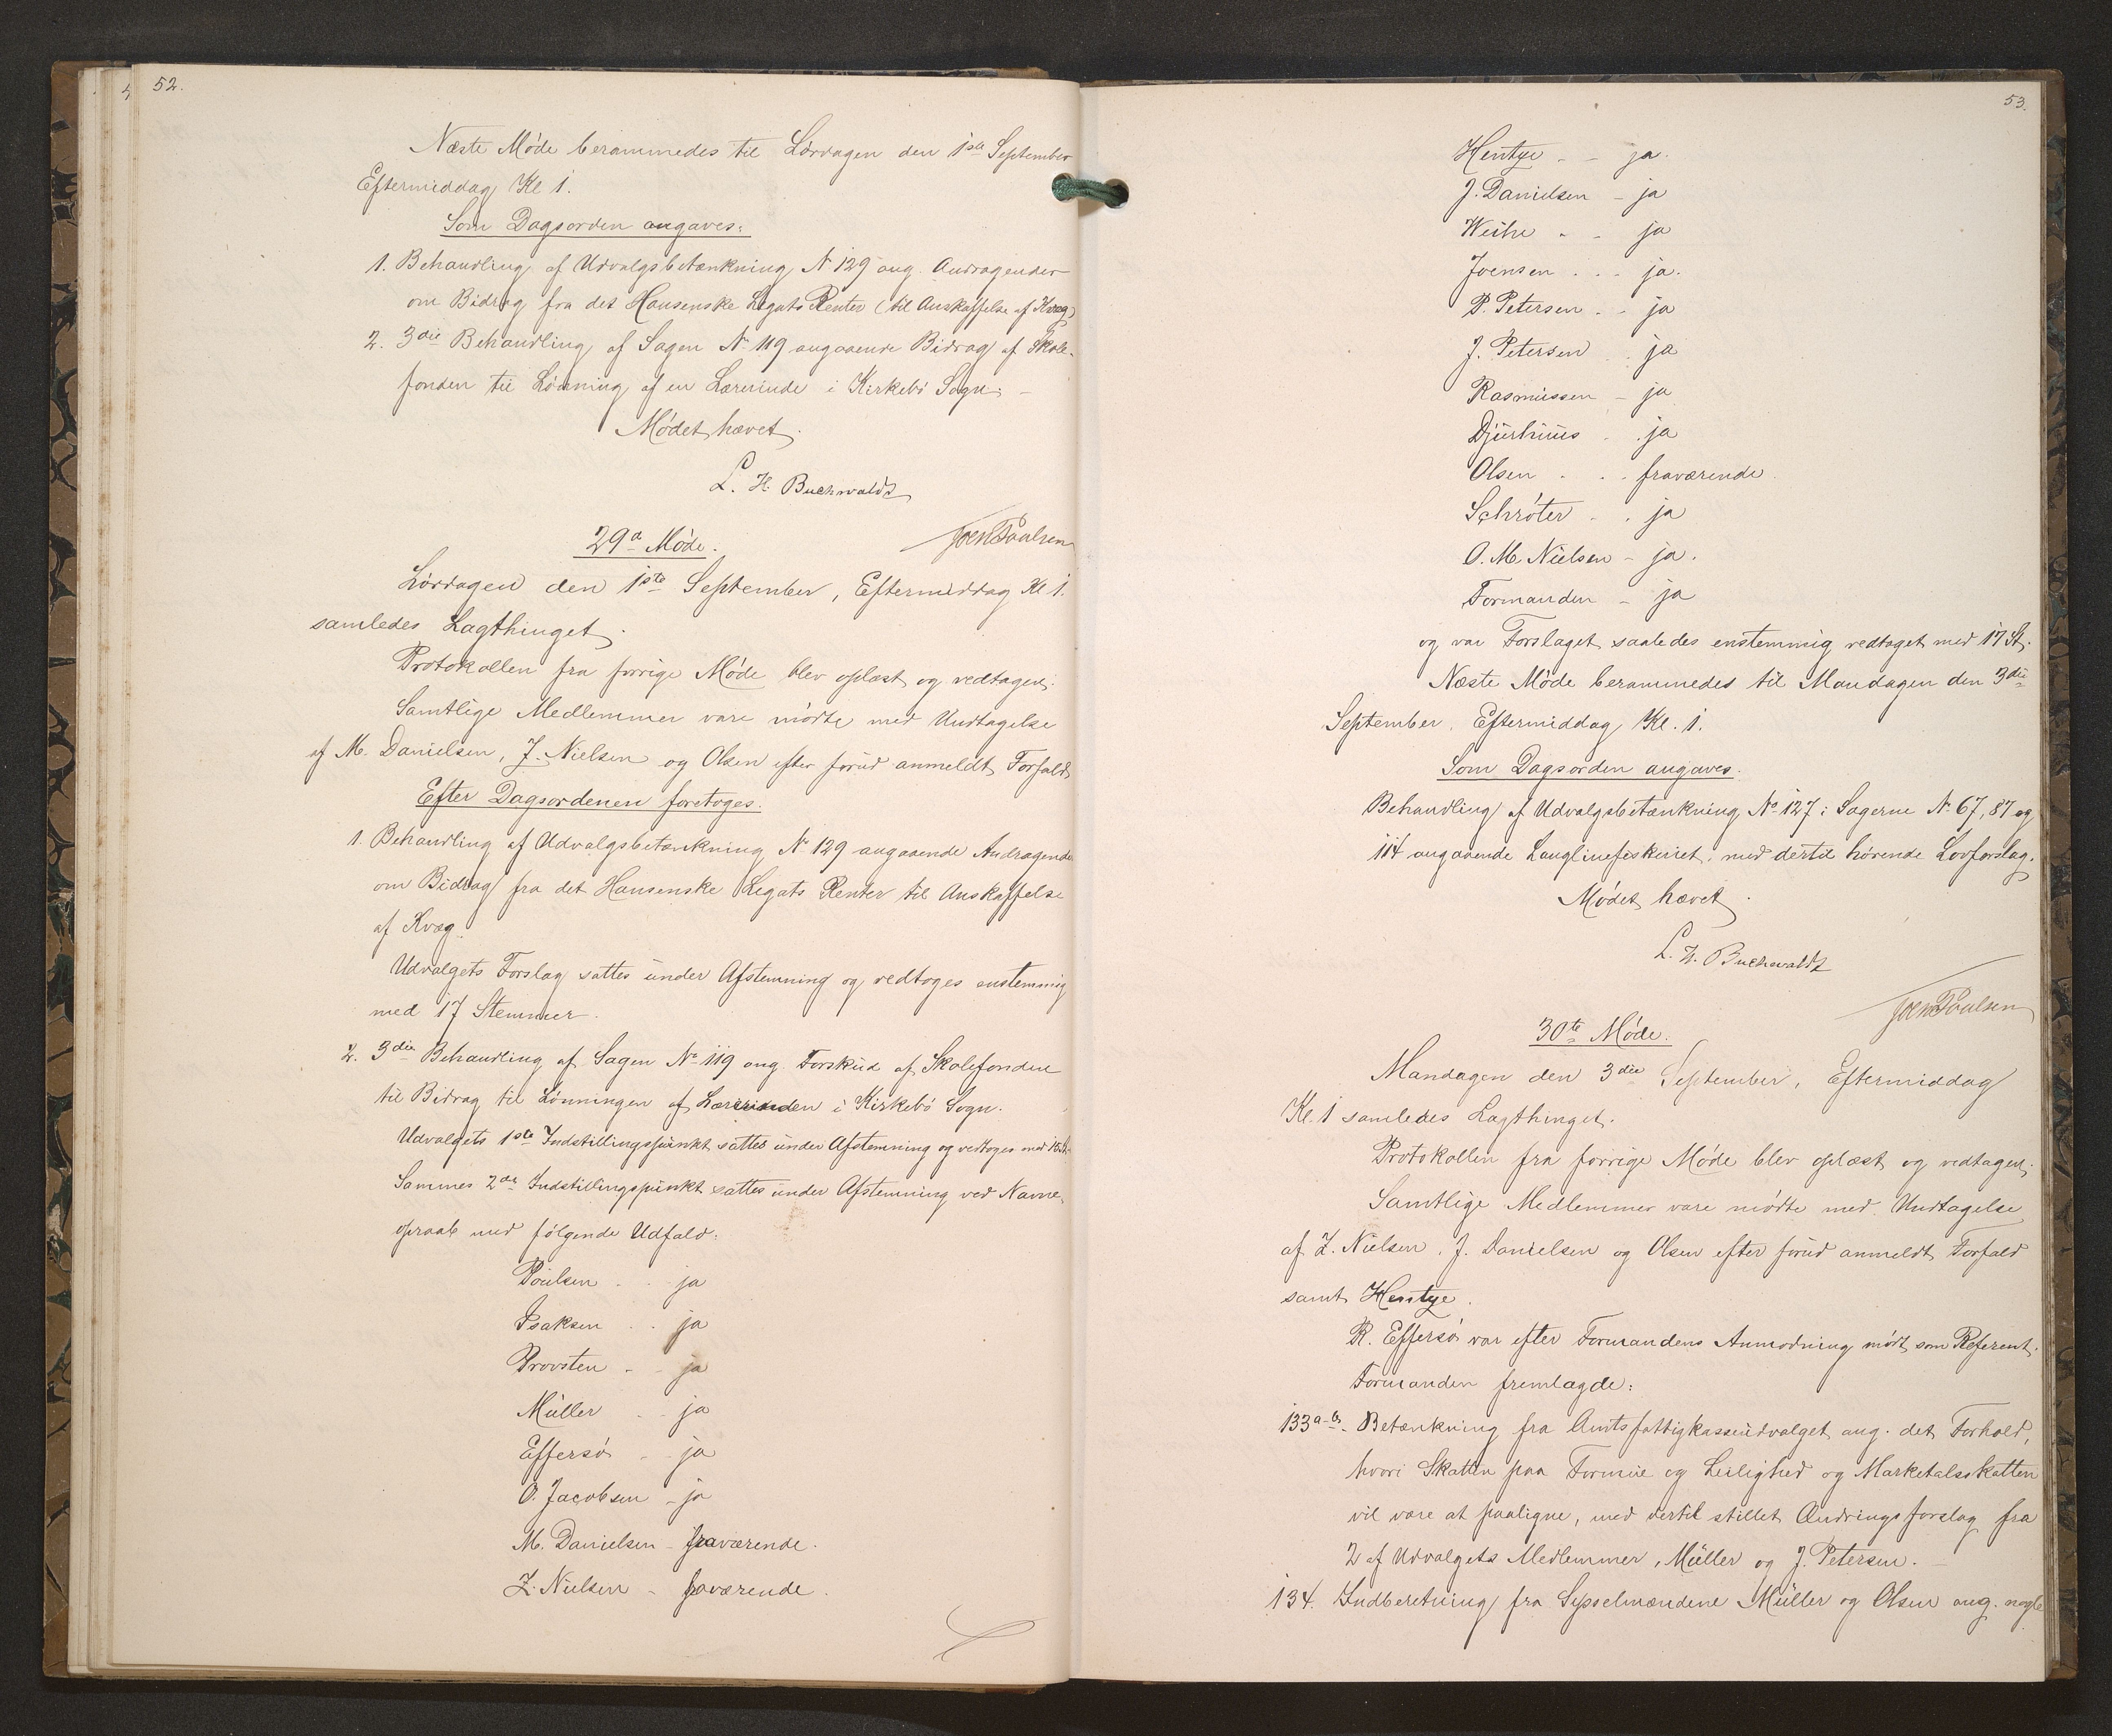 52.
Næste Møde berammedes til Lørdagen den 1ste September
Eftermiddag Kl 1.
Som Dagsorden angaves:
1. Behandling af Udvalgsbetænkning No 129 ang. Andragender
om Bidrag fra det Hansenske Legats Renter (til Anskaffelse af Kvæg)
2. 3die Behandling af Sagen No 119 angaaende Bidrag af Skole-
fonden til Lønning af en Lærerinde i Kirkebø Sogn. –
Mødet hævet.
L. H. Buchwaldt
Joen Poulsen
29de Møde.
Lørdagen den 1ste September, Eftermiddag Kl 1.
samledes Lagthinget.
Protokollen fra forrige Møde blev oplæst og vedtagen.
Samtlige Medlemmer vare mødte med Undtagelse
af M. Danielsen, Z. Nielsen og Olsen efter forud anmeldt Forfald
Efter Dagsordenen foretoges:
1. Behandling af Udvalgsbetænkning No 129 angaaende Andragender
om Bidrag fra det Hansenske Legats Renter til Anskaffelse
af Kvæg.
Udvalgets Forslag sattes under Afstemning og vedtoges enstemmig
med 17 Stemmer.
2. 3die Behandling af Sagen No 119 ang. Forskud af Skolefonden
til Bidrag til Lønningen af Lærerinden i Kirkebø Sogn.
Udvalgets 1ste Indstillingspunkt sattes under Afstemning og vedtoges med 15 St.
Sammes 2det Indstillingspunkt sattes under Afstemning ved Navne-
opraab med følgende Udfald:
Poulsen . . ja
Isaksen . . ja
Provsten - - ja
Müller . - ja
Effersø - - ja
O. Jacobsen - ja
M. Danielsen - fraværende.
Z. Nielsen - fraværende.
53.
Hentze - - ja.
J. Danielsen - ja
Weihe - - ja
Joensen . . . ja.
P. Petersen . - ja
J. Petersen . . ja
Rasmussen - ja
Djurhuus . . ja
Olsen . . . fraværende
Schrøter . . ja
O. M. Nielsen - ja.
Formanden - ja
og var Forslaget saaledes enstemmig vedtaget med 17 St.
Næste Møde berammedes til Mandagen den 3die
September, Eftermiddag Kl. 1.
Som Dagsorden angaves:
Behandling af Udvalgsbetænkning No 127 i Sagerne No 67, 87 og
114 angaaende Langlinefiskeriet, med dertil hørende Lovforslag.
Mødet hævet.
L. H. Buchwaldt
Joen Poulsen
30te Møde.
Mandagen den 3die September, Eftermiddag
Kl. 1 samledes Lagthinget.
Protokollen fra forrige Møde blev oplæst og vedtagen.
Samtlige Medlemmer vare mødte med Undtagelse
af Z. Nielsen, J. Danielsen og Olsen efter forud anmeldt Forfald
samt Hentze.
R. Effersø var efter Formandens Anmodning mødt som Referent.
Formanden fremlagde:
133a-b. Betænkning fra Amtsfattigkasseudvalget ang. det Forhold,
hvori Skatten paa Formue og Leilighed og Marketalsskatten
vil være at paaligne, med dertil stillet Ændringsforslag fra
2 af Udvalgets Medlemmer, Müller og J. Petersen. –
134. Indberetning fra Sysselmændene Müller og Olsen ang. nogle